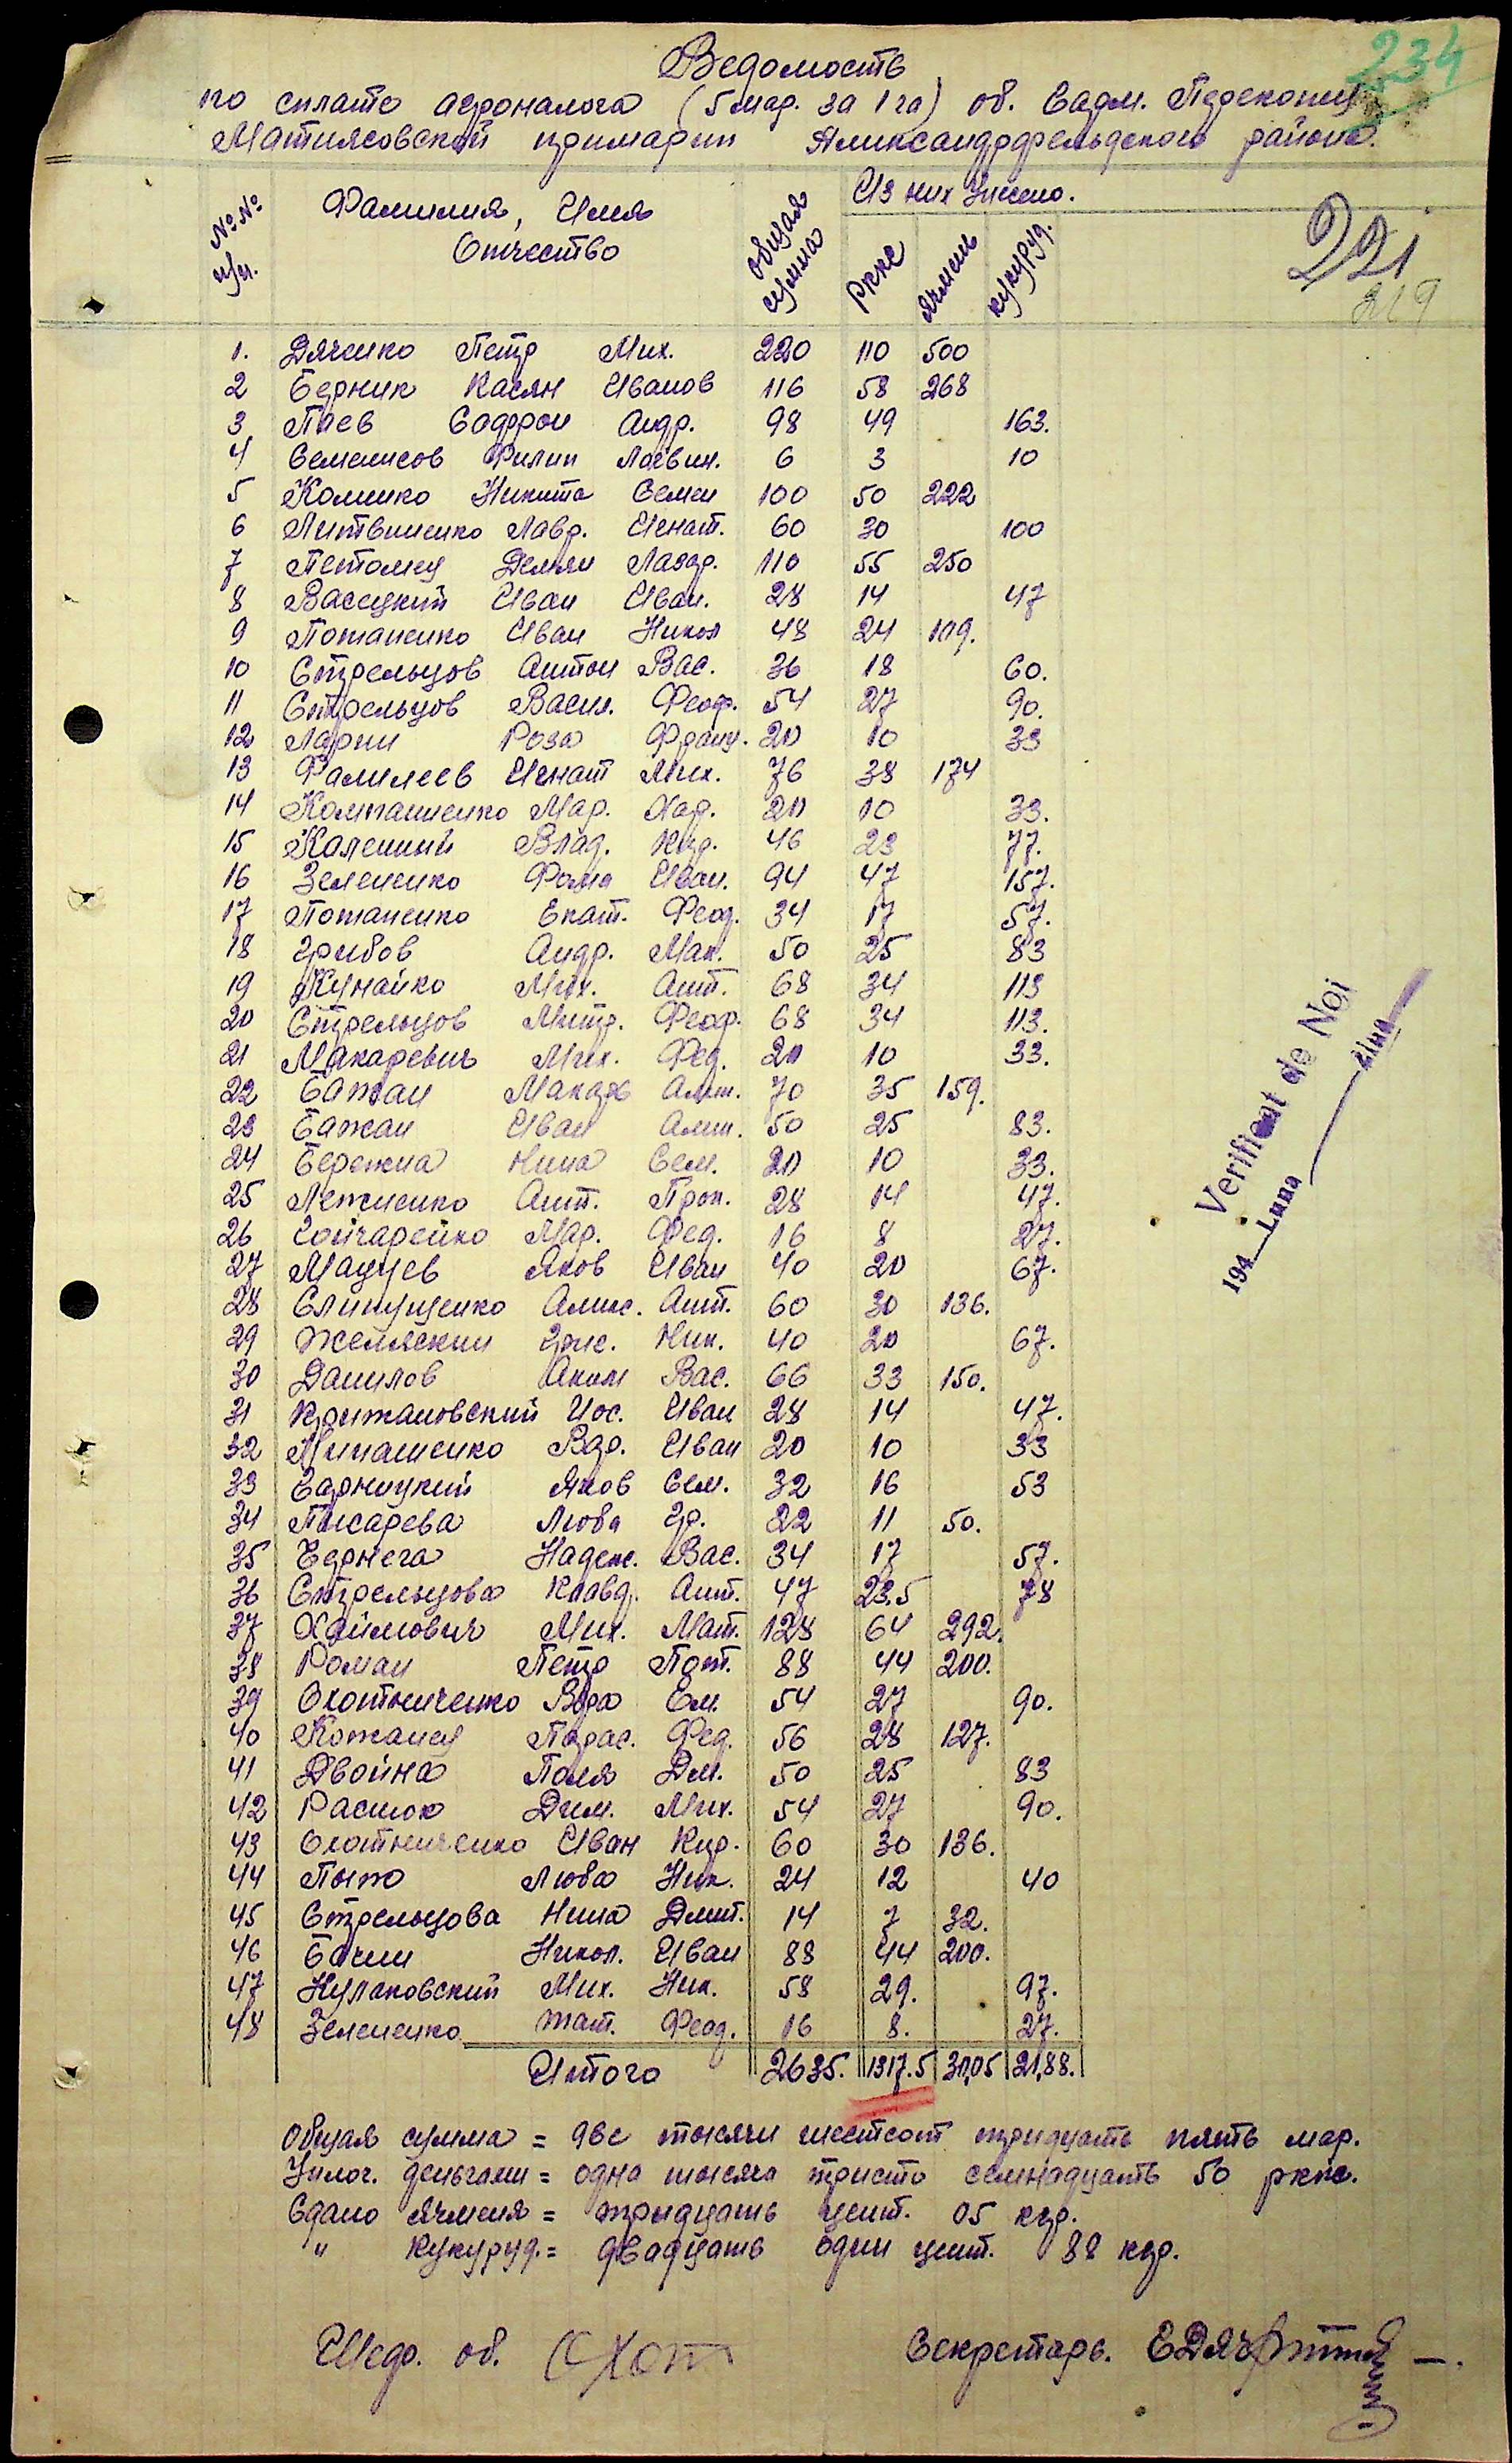 234
Ведомость
по сплате агроналога (5 мар. за 1 га) об. Садм. Перекопец
Матиясовской примарии Александрфельдского района.
№№ п/п. Фамилия, Имя Отчество общая сумма Из них Уплачено.
рккс ячмень кукуруд.
221
219
1. Дяченко Петр Мих. 220 110 500
2 Берник Касян Иванов 116 58 268
3 Паев Софрон Андр. 98 49 163.
4 Семенисов Филип Логвин. 6 3 10
5 Коменко Никита Семен 100 50 222
6 Литвиненко Лавр. Игнат. 60 30 100
7 Петомец Демян Лазар. 110 55 250
8 Васецкий Иван Иван. 28 14 47
9 Потапенко Иван Никол 48 24 109.
10 Стрельцов Антон Вас. 36 18 60.
11 Стрельцов Васил. Феоф. 54 27 90.
12 Ларин Роза Франц. 20 10 33
13 Фамилеев Игнат Мих. 76 38 174
14 Компашенко Мар. Хар. 20 10 33.
15 Каленный Влад. Кир. 46 23 77.
16 Зелененко Фома Иван. 94 47 157.
17 Потапенко Екат. Феод. 34 17 57.
18 Грибов Андр. Мак. 50 25 83
19 Кунайко Мих. Ант. 68 34 113
20 Стрельцов Митр. Феоф. 68 34 113.
21 Макаревич Мих. Фед. 20 10 33.
22 Бажан Макар Ант. 70 35 159.
23 Бажан Иван Ант. 50 25 83.
24 Бережна Нина Сем. 20 10 33.
25 Лепченко Ант. Прок. 28 14 47.
26 Гончаренко Мар. Фед. 16 8 27.
27 Мацуев Яков Иван 40 20 67.
28 Слипущенко Алекс. Ант. 60 30 136.
29 Желяскин Григ. Ник. 40 20 67.
30 Данилов Аким Вас. 66 33 150.
31 Крижановский Иос. Иван 28 14 47.
32 Минашенко Вар. Иван 20 10 33
33 Зарницкий Яков Сем. 32 16 53
34 Писарева Люба Гр. 22 11 50.
35 Чернега Надеж. Вас. 34 17 57.
36 Стрельцова Клавд. Ант. 47 23.5 78
37 Хаймович Мих. Мат. 128 64 292.
38 Роман Петр Пот. 88 44 200.
39 Охотниченко Вера Ем. 54 27 90.
40 Кожанец Парас. Фед. 56 28 127.
41 Двойна Поля Дм. 50 25 83
42 Расток Дим. Мих. 54 27 90.
43 Охотниченко Иван Кир. 60 30 136.
44 Пыто Люба Ник. 24 12 40
45 Стрельцова Нина Дмит. 14 7 32.
46 Бачин Никол. Иван 88 44 200.
47 Кулаковский Мих. Ник. 58 29. 97.
48 Зелененко Тат. Феод. 16 8. 27.
Итого 2635. 1317.5 30,05 21,88.
Verificat de Noi
194__ Luna ____ ziua
Общая сумма = две тысячи шестсот тридцать пять мар.
Уплоч. деньгами = одна тысяча тристо семнадцать 50 ркпс.
Сдано ячменя = тридцать цент. 05 кгр.
" кукуруд. = двадцать один цент. 88 кгр.
Шеф. об. Охот
Секретарь. ЕДяч